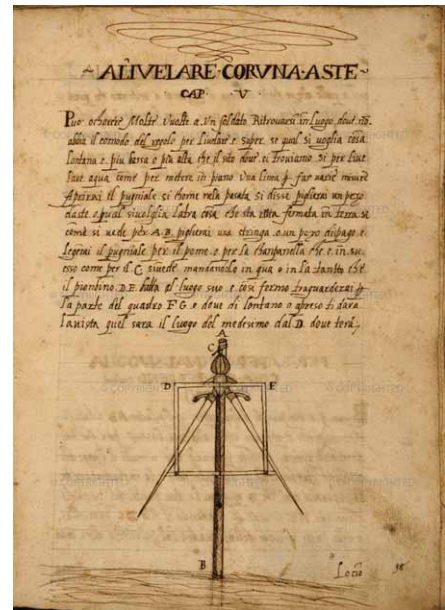 A LIVELARE CORVNA ASTE
CAP. V
Puo ochorere Molte Vuolte a Vn soldato Ritrovarsi in Luogo dove nõ
abbia il comodo del regolo per Livelare e saper se qual si voglia cosa
lontana e piu bassa o piu alta che il sito dove ci troviamo si per live
lare aqua come per metere in piano Una lima p far varie misure
Aprirai il pugniale si chome nela pasata si disse pigliarai un pezo
daste o qual sivoglia altra cosa che stia retta fermata in terra si
come si vede per A.B. piglierai una stringa o un pezo dispago e
legerai il pugniale per il pome e per la champanella che e in su
esso come per il C si vede mandandolo in qua o in la tanto che
il piontino D.E. batta al luogo suo e cosi fermo traguarderai p
la parte del quadro F G e dove di lontano o apreso ti dara
la vista quel sara il luogo del medesimo dal D. dove tera.
A
C
D E
B
38